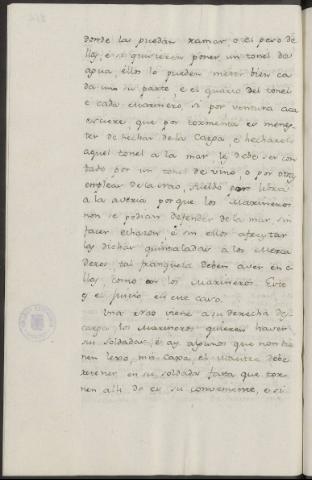 donde las puedan xamar, o el pero de
llos, e se quisieren poner un tonel da
agua, ellos lo pueden meter bien ca
da uno su parte, e el quarto del tonel
e cada Marinero, si por ventura aca
esciere, que por tormenta es menes
ter de hechar de la Carga, e hecharelo
aquel tonel a la mar, le debe ser con
tado por un tonel de vino, o por otro
emplear de la nao, sueldo por libra
a la averia porque los Marineros
non se podian defender de la mar, sin
facer echaron, e sin ellos afeytar
los dichos quintaladas a los Merca
deros, tal franqueza deben aver en e
llos, como en los Marineros. Este
es el juicio en este caso.
Una nao viene a su derecha des
carga, los Marineros quieren haver
su soldada, e ay algunos que non tie
nen lexo, nin Carga, el Maestre debe
retener en su soldada fasta que tor
nen alli do es su conveniente, o si